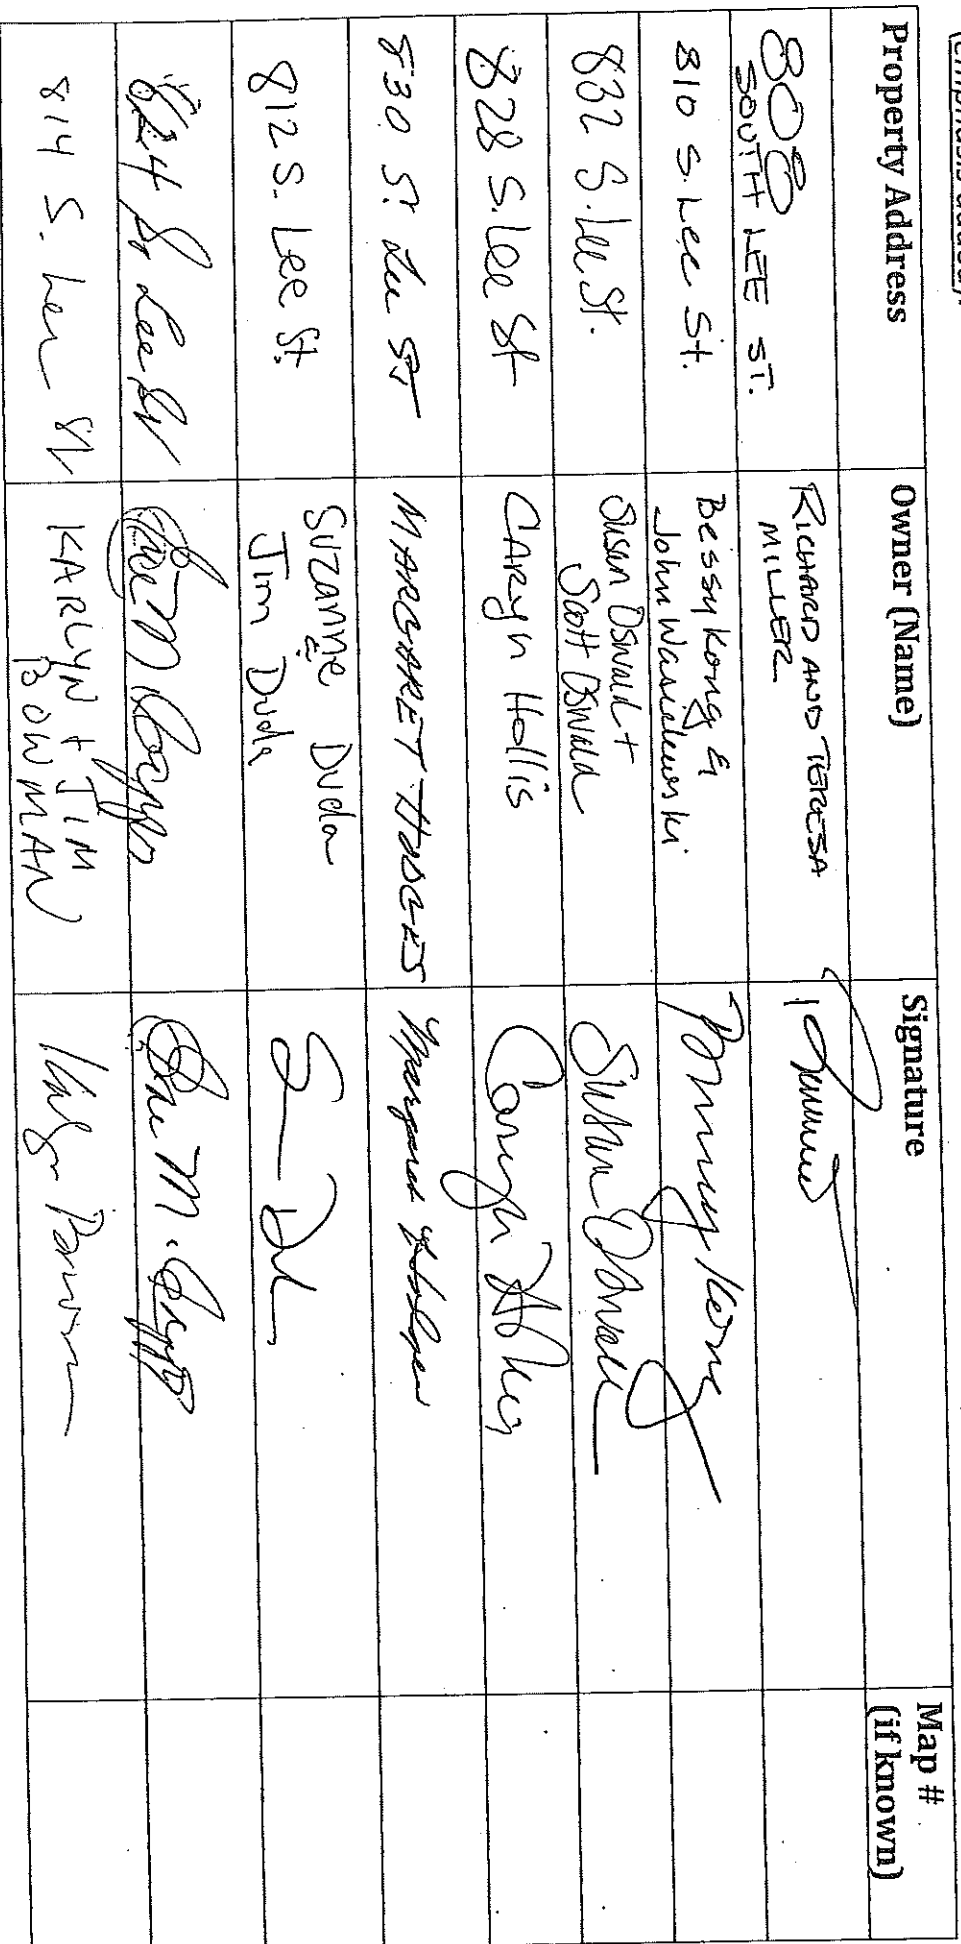 (emphasis added).
Property Address Owner (Name) Signature Map #
(if known)
808 SOUTH LEE ST. RICHARD AND TERESA
MILLER
810 S. Lee St. Bessy Kong &
John Wasielewski
832 S. Lee St. Susan Oswald +
Scott Oswald Susan Oswald
828 S. Lee St Caryn Hollis Caryn Hollis
830 S. Lee St MARGARET HODGES Margaret Hodges
812 S. Lee St. Suzanne Duda
Jim Duda
824 S. Lee St
814 S. Lee St KARLYN + JIM
BOWMAN